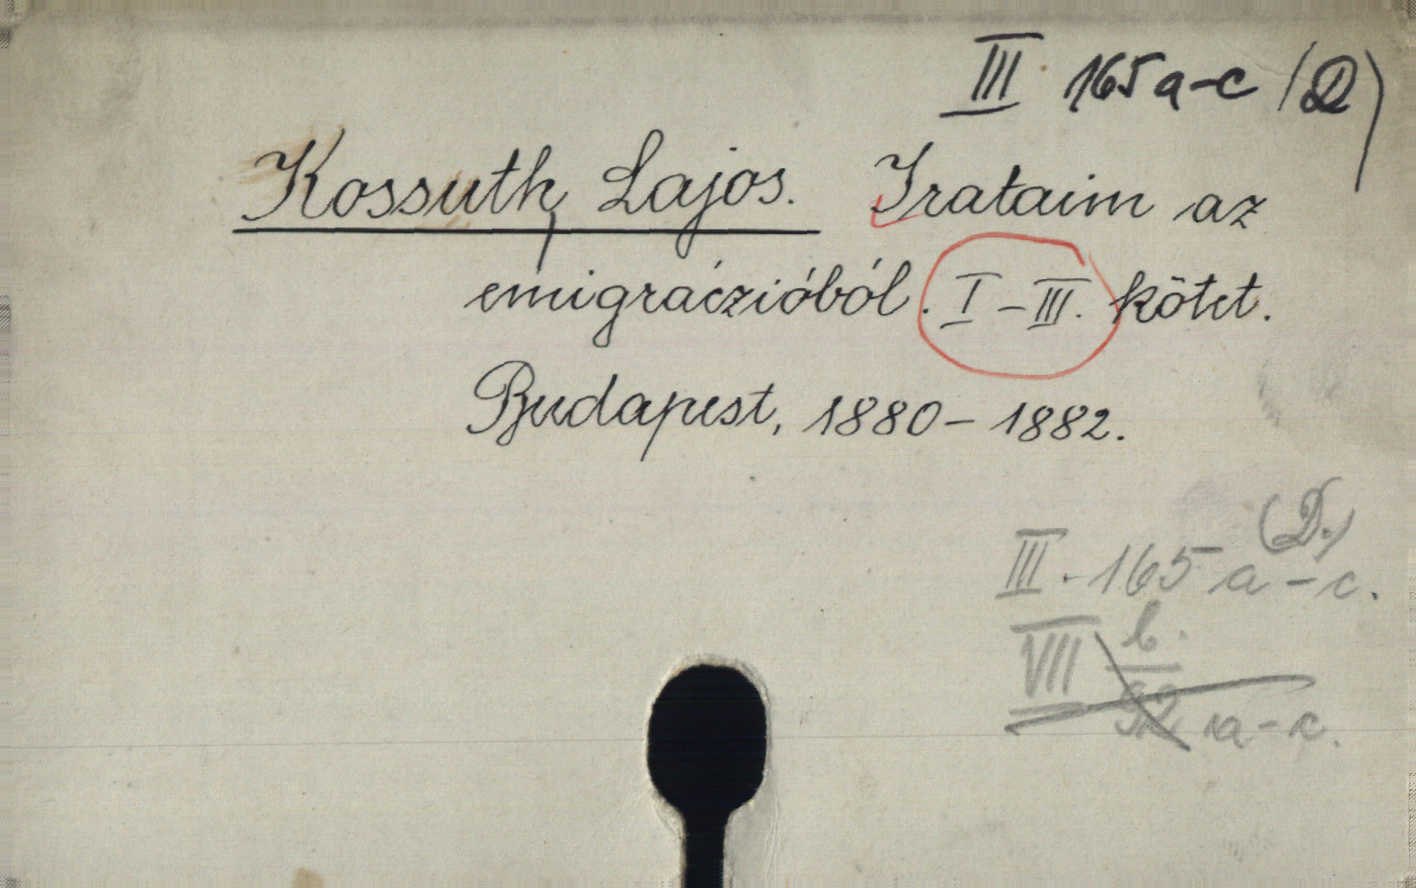 III 165 a-c (D)
Kossuth Lajos. Irataim az
emigráczióból. I-III. kötet.
Budapest, 1880-1882.
(D.)
III. 165 a-c.
VII b.
92 a-c.